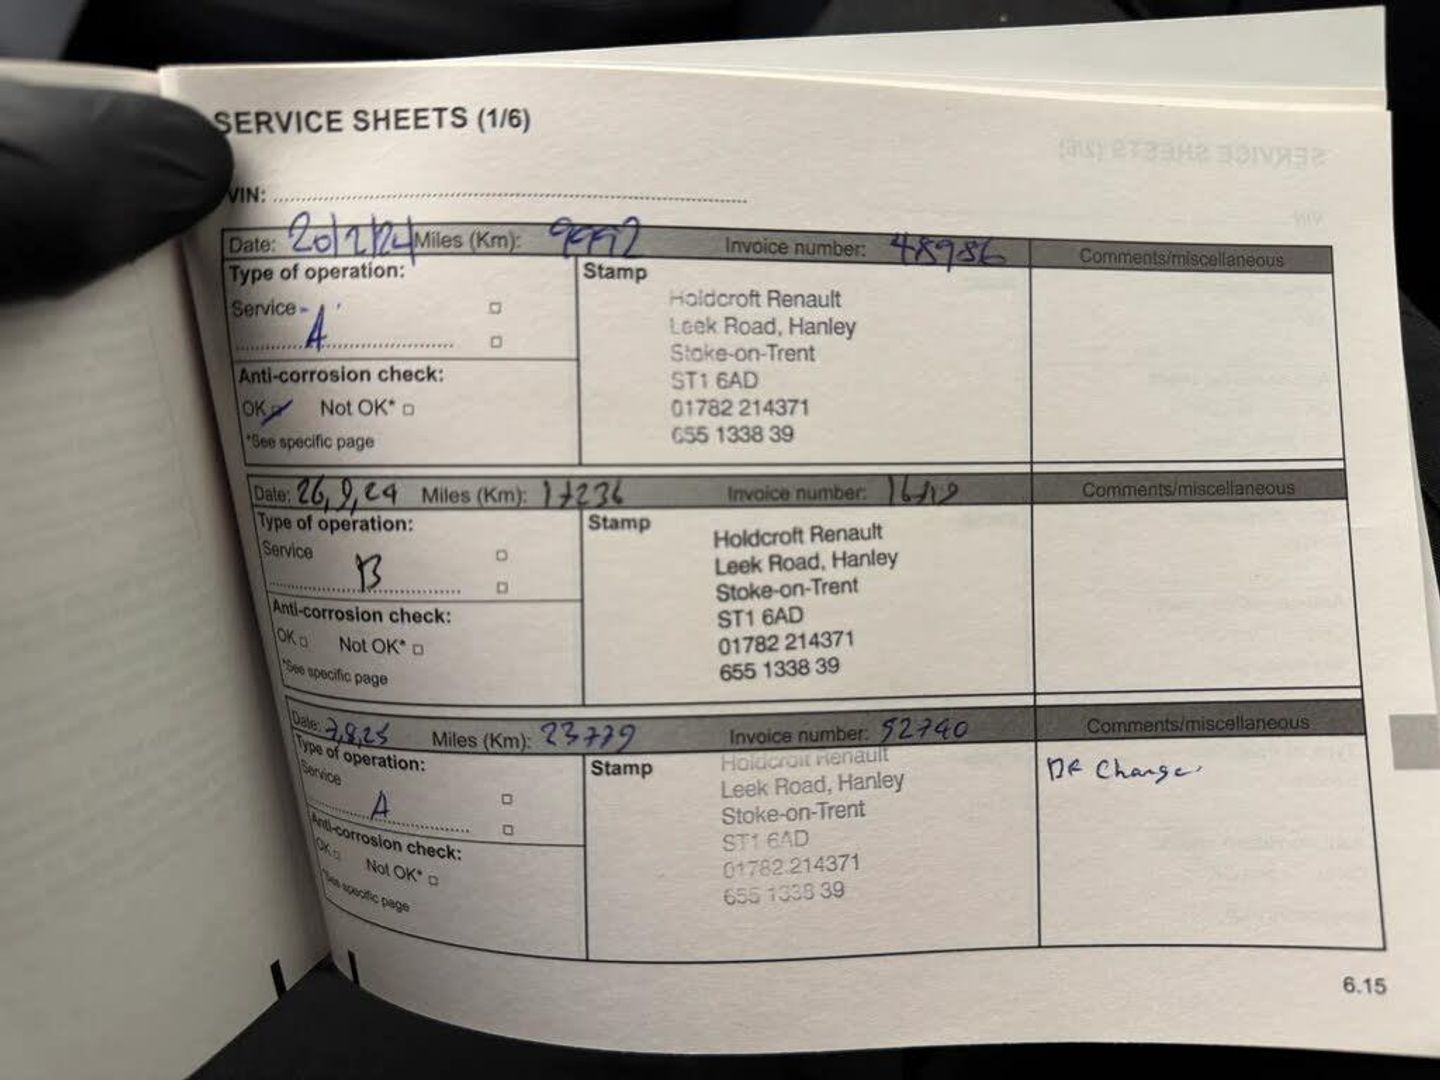 SERVICE SHEETS (1/6)
VIN:
Date: 20/2/24 Miles (Km): 9992 Invoice number: 48986 Comments/miscellaneous
Type of operation:
Service
A
Anti-corrosion check:
OK Not OK*
*See specific page
Stamp
Holdcroft Renault
Leek Road, Hanley
Stoke-on-Trent
ST1 6AD
01782 214371
655 1338 39
Date: 26,9,24 Miles (Km): 17236 Invoice number: Comments/miscellaneous
Type of operation:
Service
B
Anti-corrosion check:
OK Not OK*
*See specific page
Stamp
Holdcroft Renault
Leek Road, Hanley
Stoke-on-Trent
ST1 6AD
01782 214371
655 1338 39
Date: 7,8,25 Miles (Km): 23779 Invoice number: 52740 Comments/miscellaneous
Type of operation:
Service
A
Anti-corrosion check:
OK Not OK*
*See specific page
Stamp
Holdcroft Renault
Leek Road, Hanley
Stoke-on-Trent
ST1 6AD
01782 214371
655 1338 39
Change
6.15